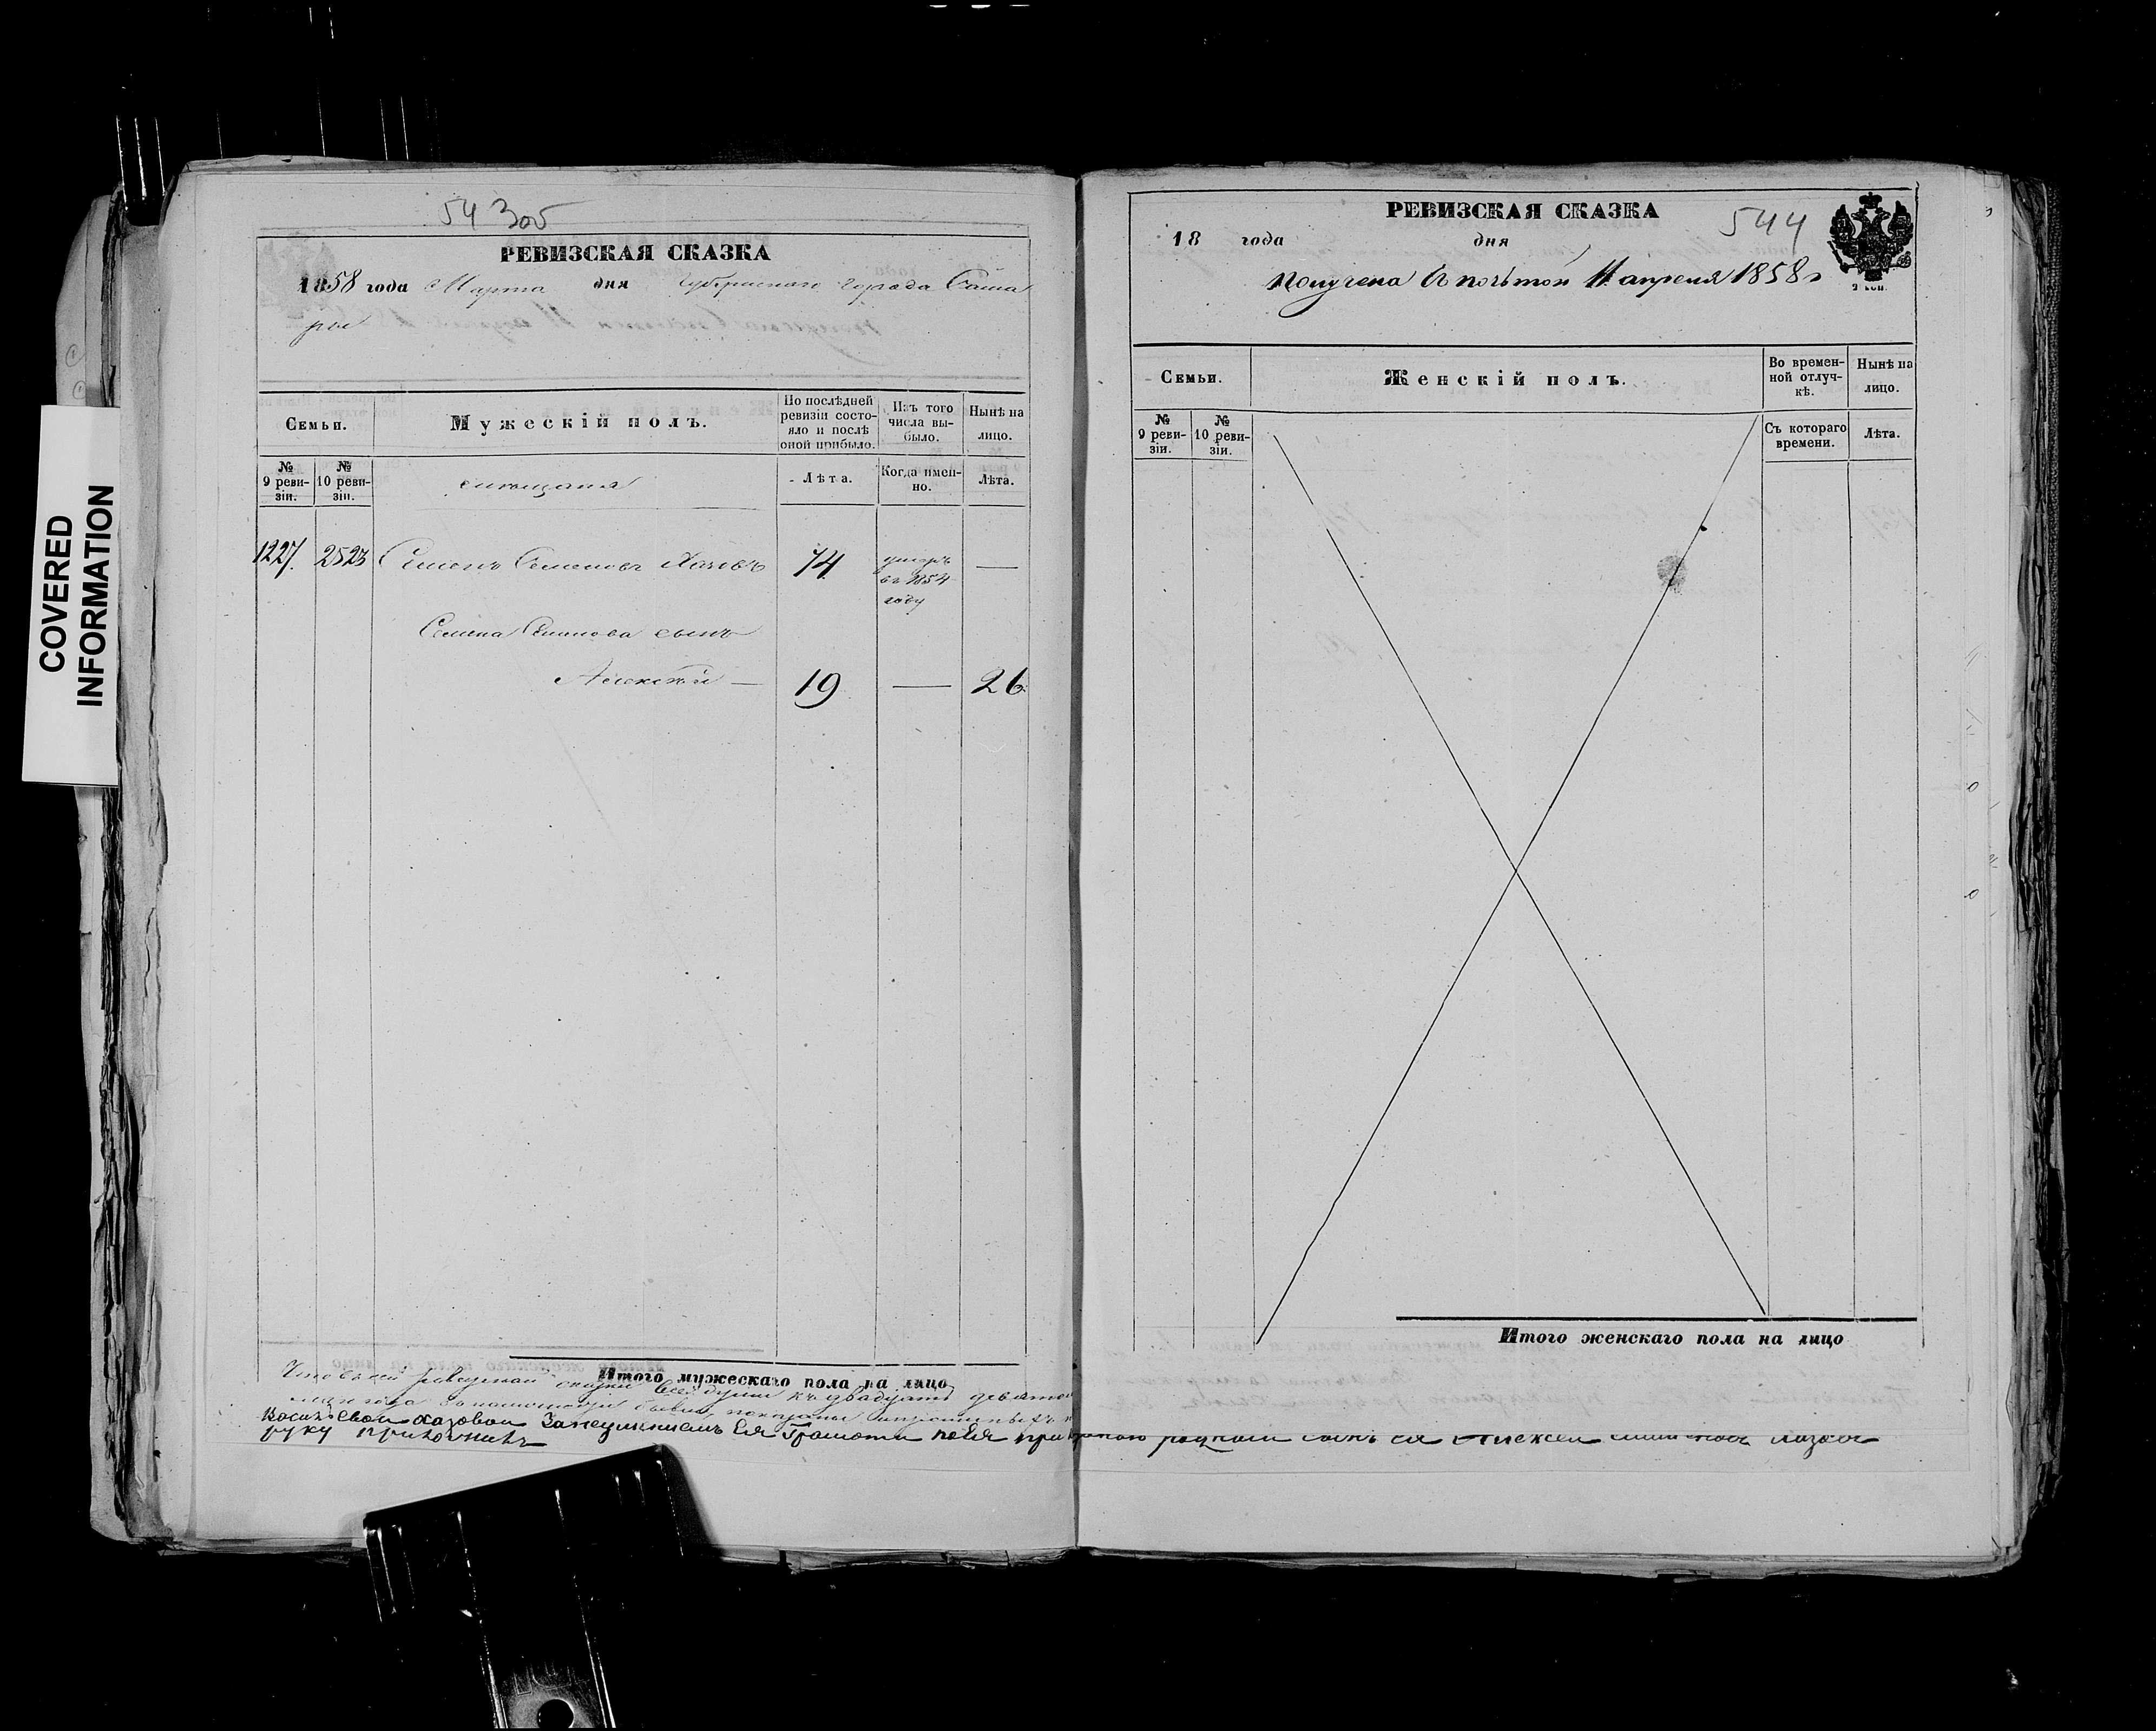 COVERED
INFORMATION
54 305
РЕВИЗСКАЯ СКАЗКА
1858 года Марта дня Губернскаго города Сама
ры
Семьи.
Мужескій полъ.
По послѣдней
ревизіи состо-
яло и послѣ
оной прибыло.
Изъ того
числа вы-
было.
Нынѣ на
лицо.
№
9 реви-
зіи.
№
10 реви-
зіи.
Лѣта.
Когда имен-
но.
Лѣта.
1227. 2523 Семенъ Семеновъ 74 умеръ —
въ 1854
году
Семена Семенова сынъ
Алексѣй — 19 — 26
Итого мужескаго пола на лицо
ревизской сказки все души къ двадцать девятой
Запеумниемъ Ея Грамоти по Ея родной сынъ ея Алексей Хазовъ
руку приложилъ
РЕВИЗСКАЯ СКАЗКА
544
18 года дня
получена с почьтой 11 апреля 1858 г
2 коп.
Семьи.
Женскій полъ.
Во времен-
ной отлуч-
кѣ.
Нынѣ на
лицо.
№
9 реви-
зіи.
№
10 реви-
зіи.
Съ котораго
времени.
Лѣта.
Итого женскаго пола на лицо